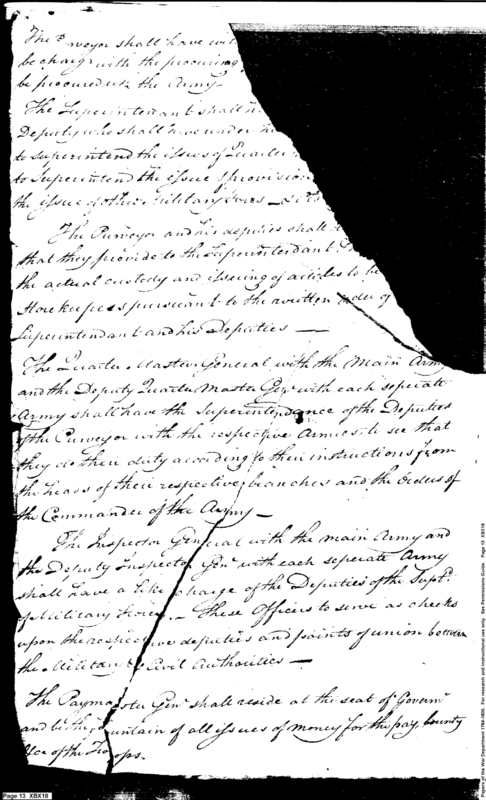 The Purveyor shall have
be charge with the procuring
be procured the Army—
The Superintendant shall
Deputy who shall have under
to superintend the issues of Quarter
to Superintend the issue of provision
the issue of other Military Stores
The Purveyor and his deputies shall
that they provide to the Superintendant
the actual custody and issuing of articles to be
Store keepers pursuant to the written order of
Superintendant and his Deputies —
The Quarter Master General with the Main Army
and the Deputy Quarter Master Genl with each seperate
Army shall have the Superintendance of the Deputies
of the Purveyor with the respective Armies to see that
they do their duty according to their instructions from
the heads of their respective branches and the Orders of
the Commander of the Army —
The Inspector General with the main Army and
the Deputy Inspector Genl with each seperate Army
shall have a like charge of the Deputies of the Supt
of Military Stores. — These Officers to serve as checks
upon the respective deputies and points of union between
the Military & Civil Authorities —
The Paymaster Genl shall reside at the seat of Governmt
and be the fountain of all issues of money for the pay, bounty
&ca of the Troops.
Page 13 XBX18
Papers of the War Department 1784-1800. For research and instructional use only. See Permissions Guide. Page 13 XBX18